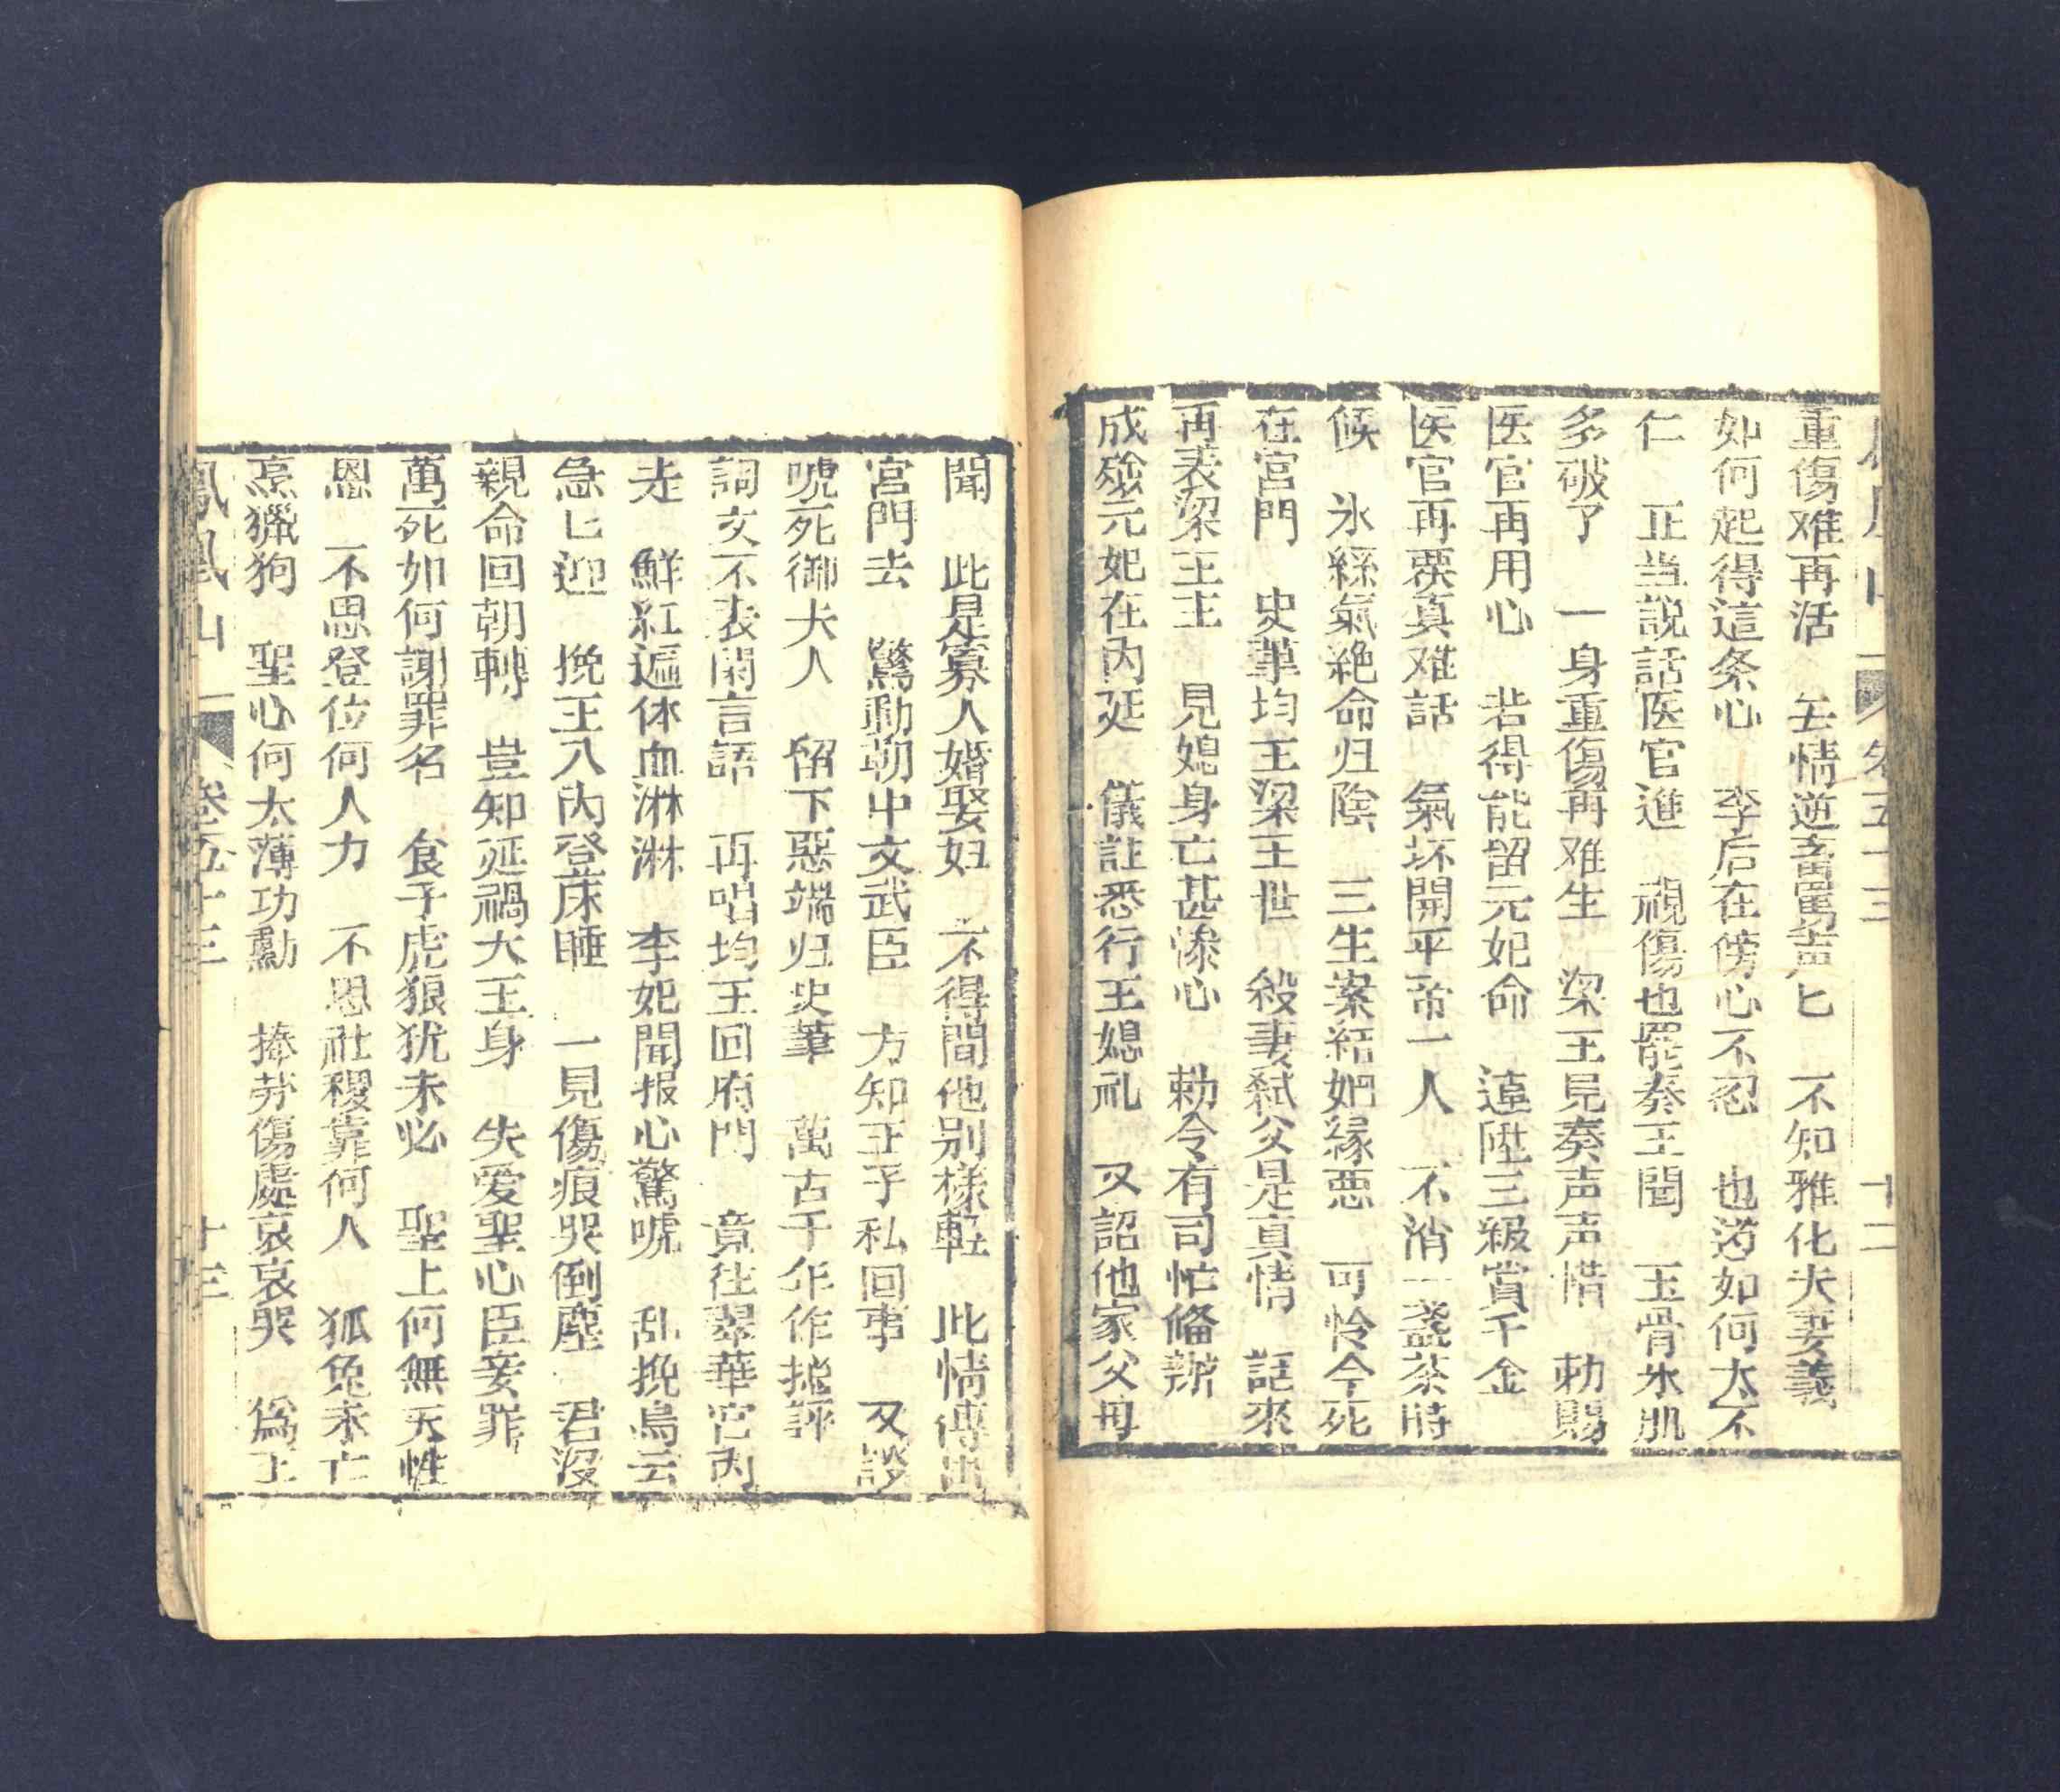 重傷难再活　无情逆畜罵声匕　不知雅化夫妻義
如何起得這条心　李后在傍心不忍　也道如何太不
仁　正当説話医官進　視傷也罷奏王聞　玉骨氷肌
多破了　一身重傷再难生　梁王見奏声声惜　勅賜
医官再用心　若得能留元妃命　連陞三級賞千金
医官再禀真难話　氣坏開平帝一人　不消一盞茶時
候　氷絲氣絶命归陰　三生案結姻緣悪　可怜今死
在宮門　史筆均王梁王世　殺妻弑父是真情　話來
再表梁王主　見媳身亡甚慘心　勅令有司忙偹辦
成殮元妃在內廷　儀註悉行王媳礼　又詔他家父母
聞　此是寡人婚娶妇　不得間他别樣軽　此情傳出
宮門去　驚動朝中文武臣　方知王子私回事　又談
唬死御夫人　留下惡端归史筆　萬古千年作挽評
詞文不表閑言語　再唱均王回府門　竟往翠華宮內
走　鮮紅遍体血淋淋　李妃聞报心驚唬　乱挽烏云
急匕迎　挽王入內登床睡　一見傷痕哭倒塵　君沒
親命回朝轉　豈知延禍大王身　失爱聖心臣妾罪
萬死如何謝罪名　食子虎狼犹未必　聖上何無天性
恩　不思登位何人力　不思社稷靠何人　狐兔未亡
烹獵狗　聖心何太薄功勳　捧劳傷處哀哀哭　為王
鳳凰山　卷五十三　十三